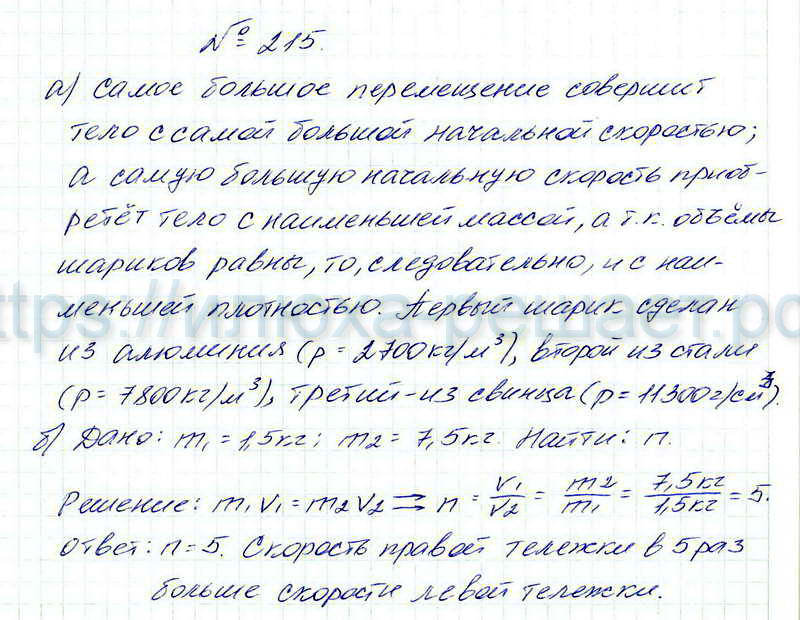 № 215.
а) Самое большое перемещение совершит
тело с самой большой начальной скоростью;
а самую большую начальную скорость приоб-
ретёт тело с наименьшей массой, а т.к. объёмы
шариков равны, то, следовательно, и с наи-
меньшей плотностью. Первый шарик сделан
https://илюха-решает.рф
из алюминия (ρ = 2700кг/м³), второй из стали
(ρ = 7800кг/м³), третий-из свинца (ρ = 11300г/см³).
б) Дано: m₁ = 1,5кг; m₂ = 7,5кг. Найти: n.
Решение: m₁v₁ = m₂v₂ ⇒ n = v₁/v₂ = m₂/m₁ = 7,5кг/1,5кг = 5.
Ответ: n = 5. Скорость правой тележки в 5 раз
больше скорости левой тележки.